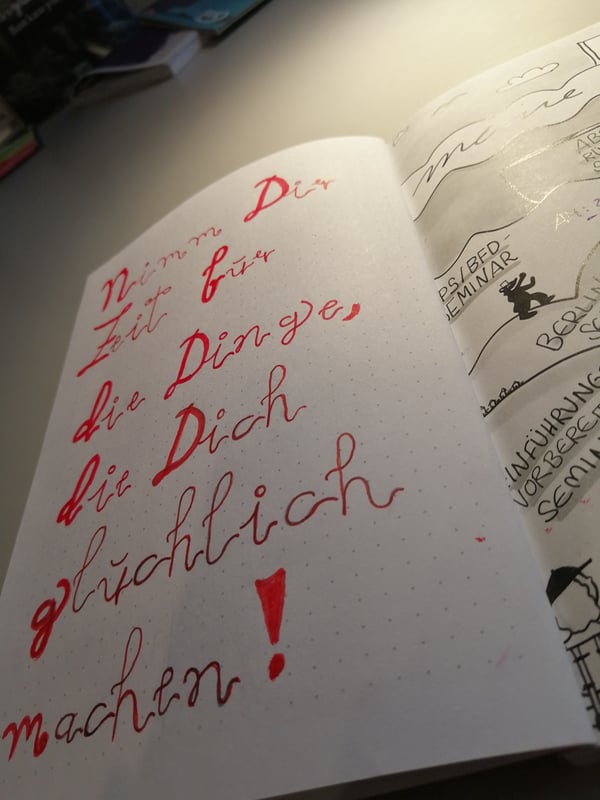 Nimm Dir
Zeit für
die Dinge,
die Dich
glücklich
machen!
meine
PS/BED
SEMINAR
BERLIN
SE
INFÜHRUNG
VORBEREIT
SEMIN